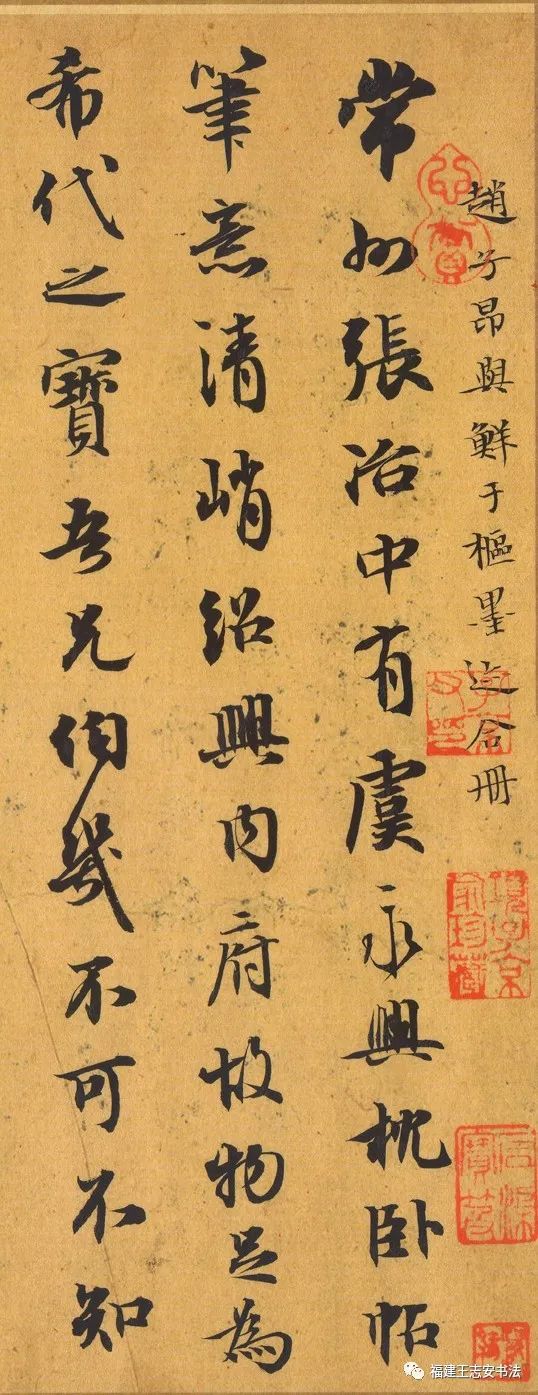 趙子昂與鮮于樞墨迹合冊
常州張治中有虞永興枕卧帖
筆意清峭紹興内府故物足為
希代之寶吾兄伯幾不可不知
項子京家珍藏
福建王志安书法